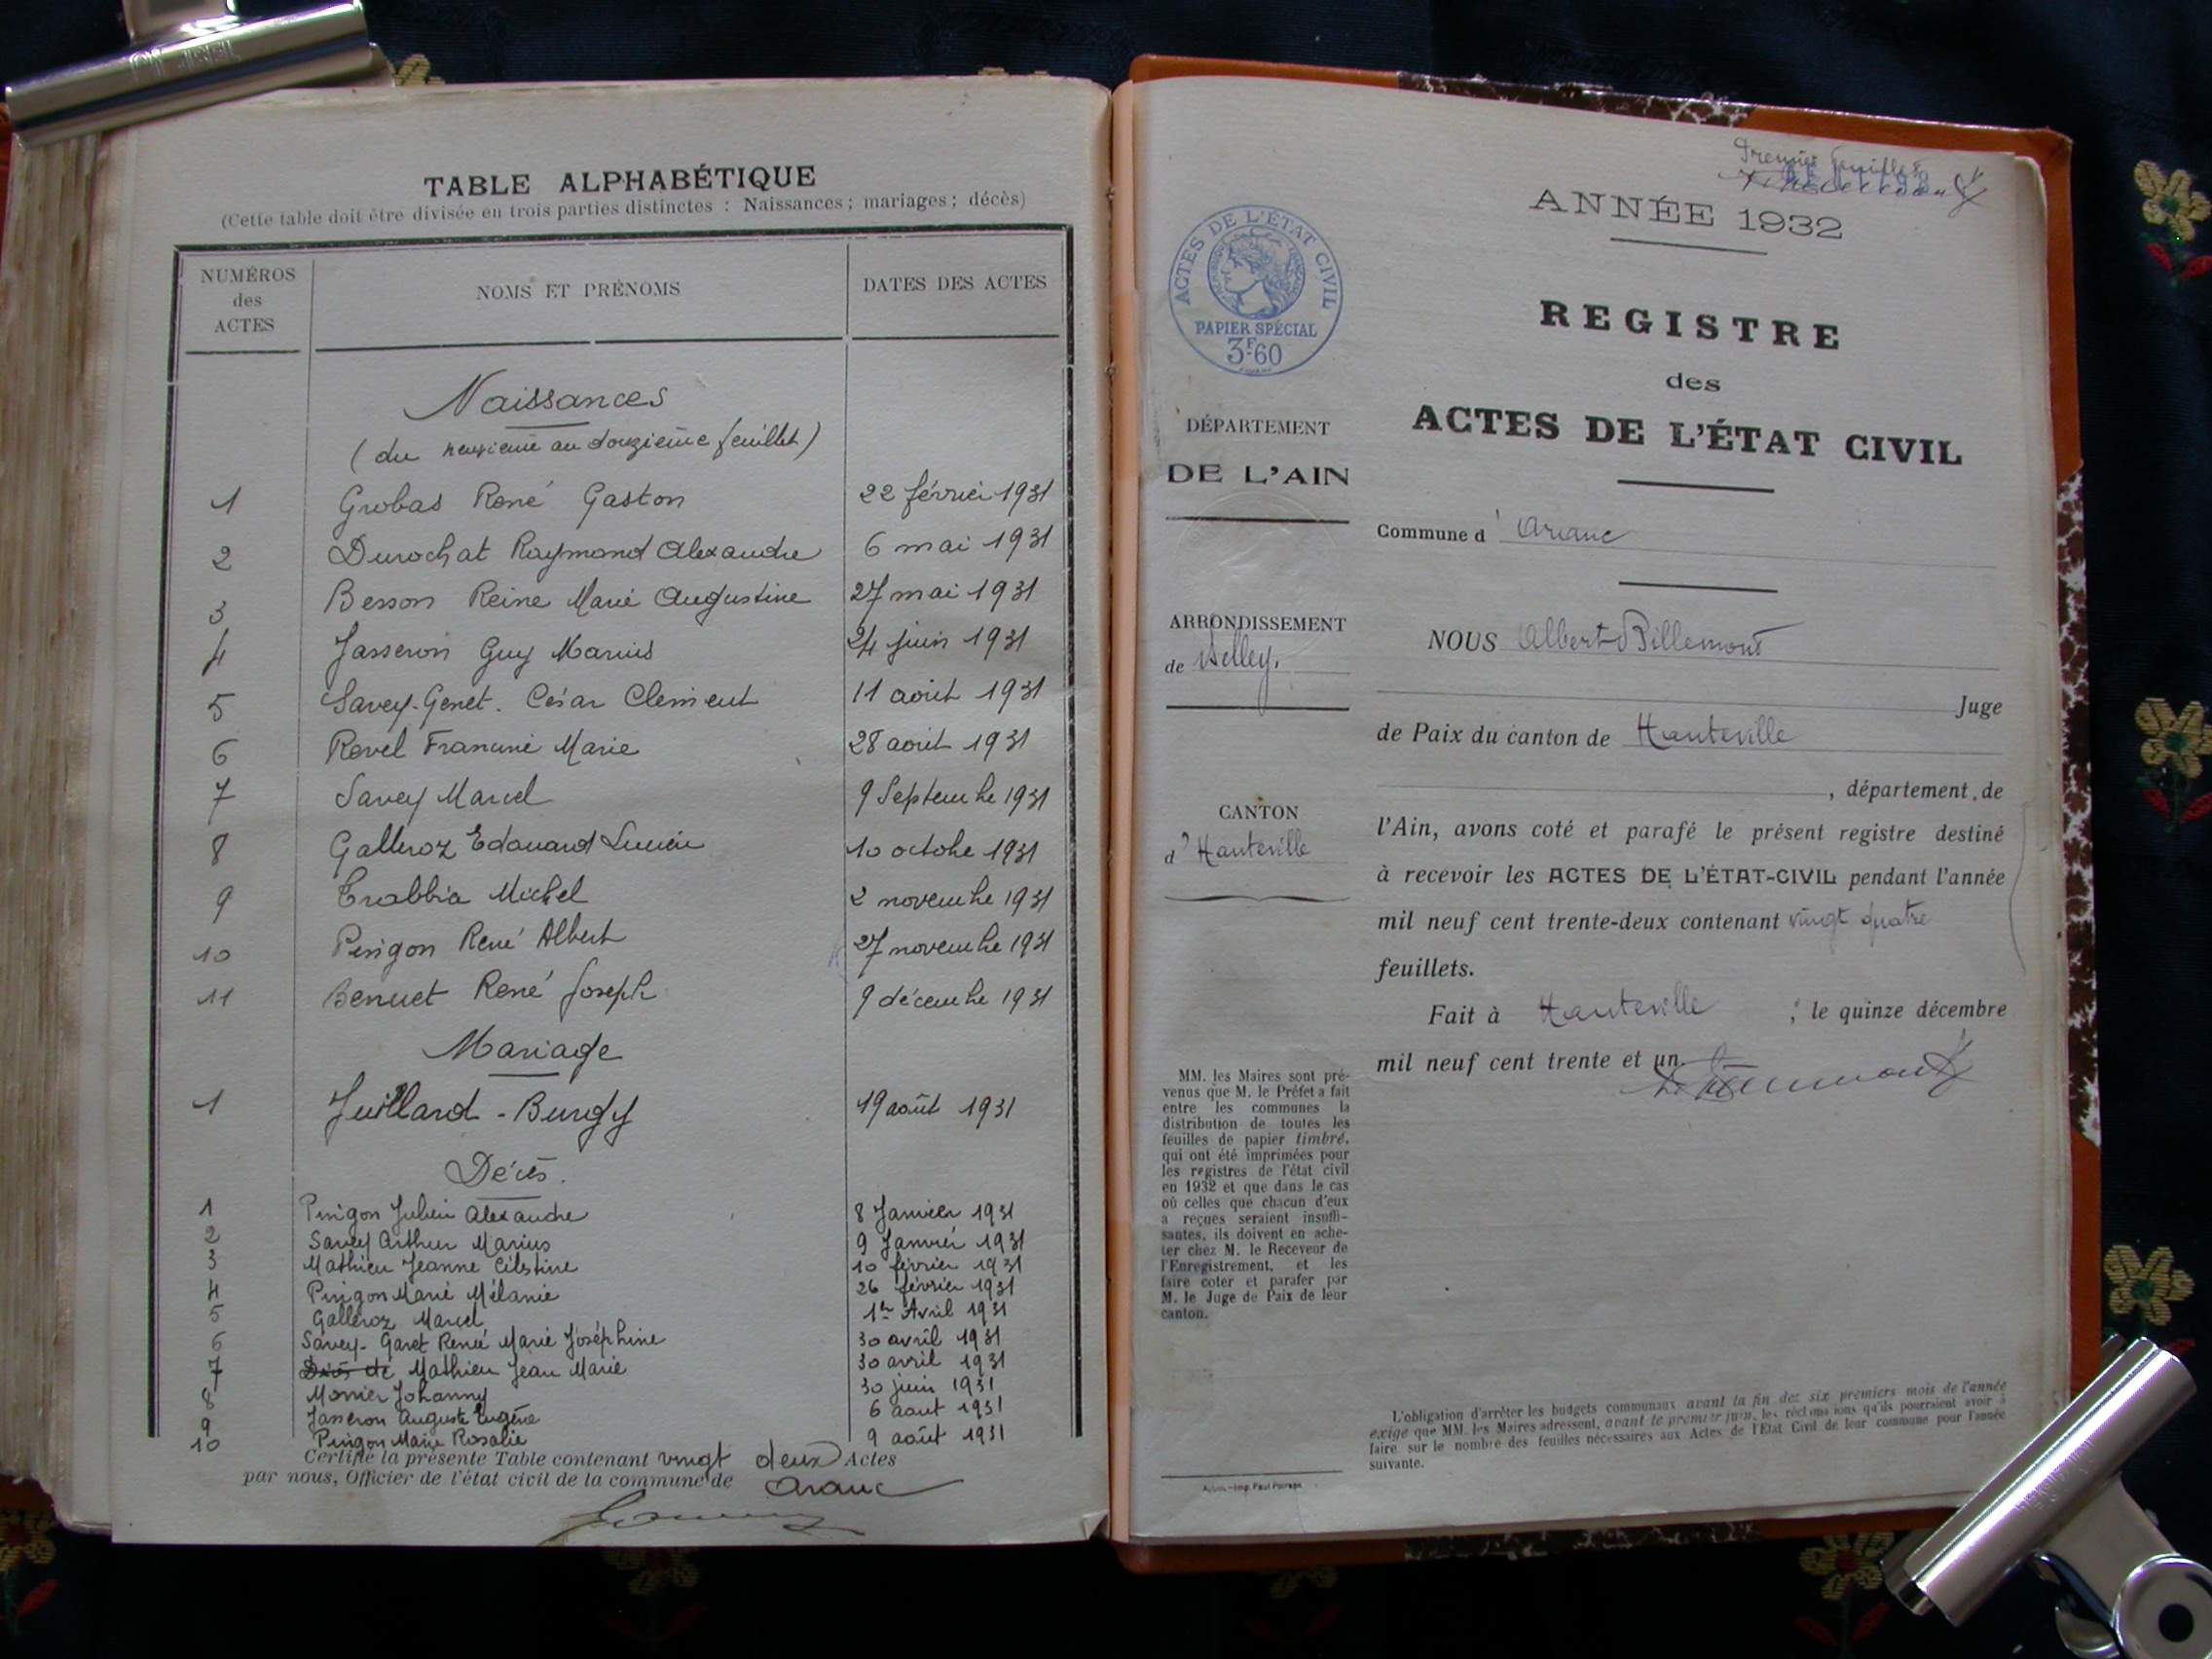 TABLE ALPHABÉTIQUE
(Cette table doit être divisée en trois parties distinctes : Naissances ; mariages ; décès)
NUMÉROS des ACTES
NOMS ET PRÉNOMS
DATES DES ACTES
Naissances
(du au douzième feuillet)
1 Grobas René Gaston 22 février 1931
2 Durochat Raymond Alexandre 6 mai 1931
3 Besson Reine Marie Augustine 27 mai 1931
4 Jasseron Guy Marius 24 juin 1931
5 Savey-Genet. César Clement 11 aout 1931
6 Revel Francine Marie 28 aout 1931
7 Savey Marcel 9 Septembre 1931
8 Galleroz Edouard Lucien 10 octobre 1931
9 Trabbia Michel 2 novembre 1931
10 Pingon René Albert 27 novembre 1931
11 René Joseph 9 décembre 1931
Mariage
1 Juillard - Burdy 19 août 1931
Décès.
1 Pingon Julien Alexandre 8 Janvier 1931
2 Savey Arthur Marius 9 Janvier 1931
3 Mathieu Jeanne Célestine 10 février 1931
4 Pingon Marie Mélanie 26 février 1931
5 Galleroz Marcel 1er Avril 1931
6 Savey- Renée Marie Joséphine 30 avril 1931
7 Mathieu Jean Marie 30 avril 1931
8 Monier Johanny 30 juin 1931
9 Jasseron Auguste Eugène 6 aout 1931
10 Pingon Marie Rosalie 9 août 1931
Certifié la présente Table contenant vingt deux Actes
par nous, Officier de l'état civil de la commune de Aranc
Premier feuillet
ANNÉE 1932
REGISTRE
des
ACTES DE L'ÉTAT CIVIL
ACTES DE L'ÉTAT CIVIL
PAPIER SPÉCIAL
3F60
DÉPARTEMENT
DE L'AIN
ARRONDISSEMENT
de Belley.
CANTON
d'Hauteville
MM. les Maires sont pré-
venus que M. le Préfet a fait
entre les communes la
distribution de toutes les
feuilles de papier timbré,
qui ont été imprimées pour
les registres de l'état civil
en 1932 et que dans le cas
où celles que chacun d'eux
a reçues seraient insuffi-
santes, ils doivent en ache-
ter chez M. le Receveur de
l'Enregistrement, et les
faire coter et parafer par
M. le Juge de Paix de leur
canton.
Commune d'Aranc
NOUS Albert Billemont
Juge
de Paix du canton de Hauteville
, département de
l'Ain, avons coté et parafé le présent registre destiné
à recevoir les ACTES DE L'ÉTAT-CIVIL pendant l'année
mil neuf cent trente-deux contenant vingt quatre
feuillets.
Fait à Hauteville, le quinze décembre
mil neuf cent trente et un.
L'obligation d'arrêter les budgets communaux avant la fin des six premiers mois de l'année
exige que MM. les Maires adressent, avant le premier juin, les réclamations qu'ils pourraient avoir à
faire sur le nombre des feuilles nécessaires aux Actes de l'Etat Civil de leur commune pour l'année
suivante.